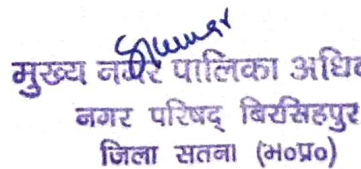 मुख्य नगर पालिका
नगर परिषद् बिरसिहपुर
जिला सतना (म०प्र०)